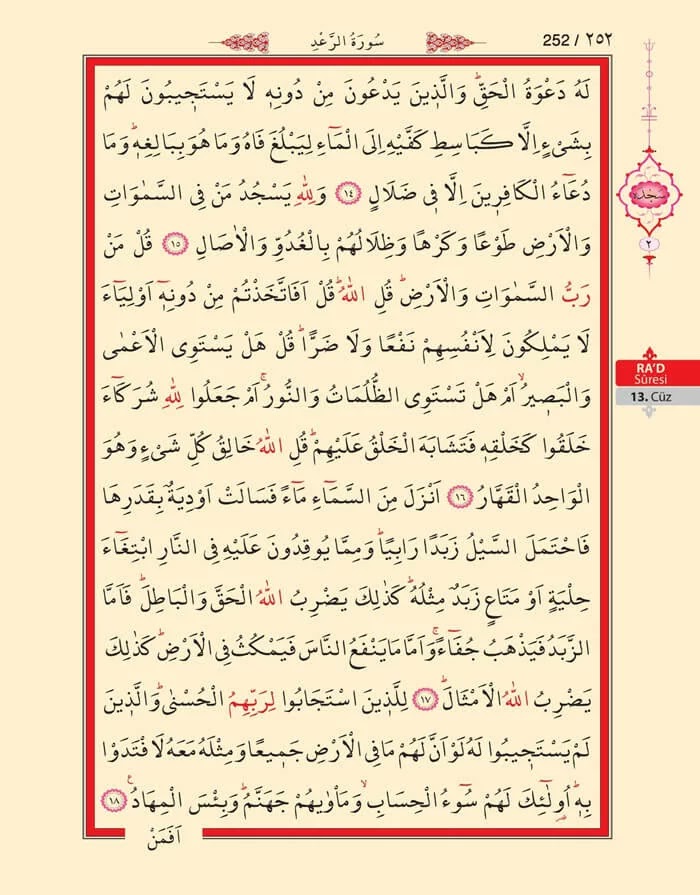 252 / ٢٥٢
سُورَةُ الرَّعْدِ
لَهُ دَعْوَةُ الْحَقِّۜ وَالَّذ۪ينَ يَدْعُونَ مِنْ دُونِه۪ لَا يَسْتَج۪يبُونَ لَهُمْ
بِشَيْءٍ اِلَّا كَبَاسِطِ كَفَّيْهِ اِلَى الْمَٓاءِ لِيَبْلُغَ فَاهُ وَمَا هُوَ بِبَالِغِه۪ۜ وَمَا
دُعَٓاءُ الْكَافِر۪ينَ اِلَّا ف۪ي ضَلَالٍ ١٤ وَلِلّٰهِ يَسْجُدُ مَنْ فِي السَّمٰوَاتِ
وَالْاَرْضِ طَوْعًا وَكَرْهًا وَظِلَالُهُمْ بِالْغُدُوِّ وَالْاٰصَالِ ١٥ قُلْ مَنْ
رَبُّ السَّمٰوَاتِ وَالْاَرْضِۜ قُلِ اللّٰهُۜ قُلْ اَفَاتَّخَذْتُمْ مِنْ دُونِه۪ٓ اَوْلِيَٓاءَ
لَا يَمْلِكُونَ لِاَنْفُسِهِمْ نَفْعًا وَلَا ضَرًّاۜ قُلْ هَلْ يَسْتَوِي الْاَعْمٰى
وَالْبَص۪يرُۙ اَمْ هَلْ تَسْتَوِي الظُّلُمَاتُ وَالنُّورُۚ اَمْ جَعَلُوا لِلّٰهِ شُرَكَٓاءَ
خَلَقُوا كَخَلْقِه۪ فَتَشَابَهَ الْخَلْقُ عَلَيْهِمْۜ قُلِ اللّٰهُ خَالِقُ كُلِّ شَيْءٍ وَهُوَ
الْوَاحِدُ الْقَهَّارُ ١٦ اَنْزَلَ مِنَ السَّمَٓاءِ مَٓاءً فَسَالَتْ اَوْدِيَةٌ بِقَدَرِهَا
فَاحْتَمَلَ السَّيْلُ زَبَدًا رَابِيًاۜ وَمِمَّا يُوقِدُونَ عَلَيْهِ فِي النَّارِ ابْتِغَٓاءَ
حِلْيَةٍ اَوْ مَتَاعٍ زَبَدٌ مِثْلُهُۜ كَذٰلِكَ يَضْرِبُ اللّٰهُ الْحَقَّ وَالْبَاطِلَۜ فَاَمَّا
الزَّبَدُ فَيَذْهَبُ جُفَٓاءًۚ وَاَمَّا مَا يَنْفَعُ النَّاسَ فَيَمْكُثُ فِي الْاَرْضِۜ كَذٰلِكَ
يَضْرِبُ اللّٰهُ الْاَمْثَالَۜ ١٧ لِلَّذ۪ينَ اسْتَجَابُوا لِرَبِّهِمُ الْحُسْنٰىۜ وَالَّذ۪ينَ
لَمْ يَسْتَج۪يبُوا لَهُ لَوْ اَنَّ لَهُمْ مَا فِي الْاَرْضِ جَم۪يعًا وَمِثْلَهُ مَعَهُ لَافْتَدَوْا
بِه۪ۜ اُو۬لٰٓئِكَ لَهُمْ سُٓوءُ الْحِسَابِۙ وَمَأْوٰيهُمْ جَهَنَّمُۜ وَبِئْسَ الْمِهَادُ۟ ١٨
اَفَمَنْ
سجده
٢
RA'D
Sûresi
13. Cüz